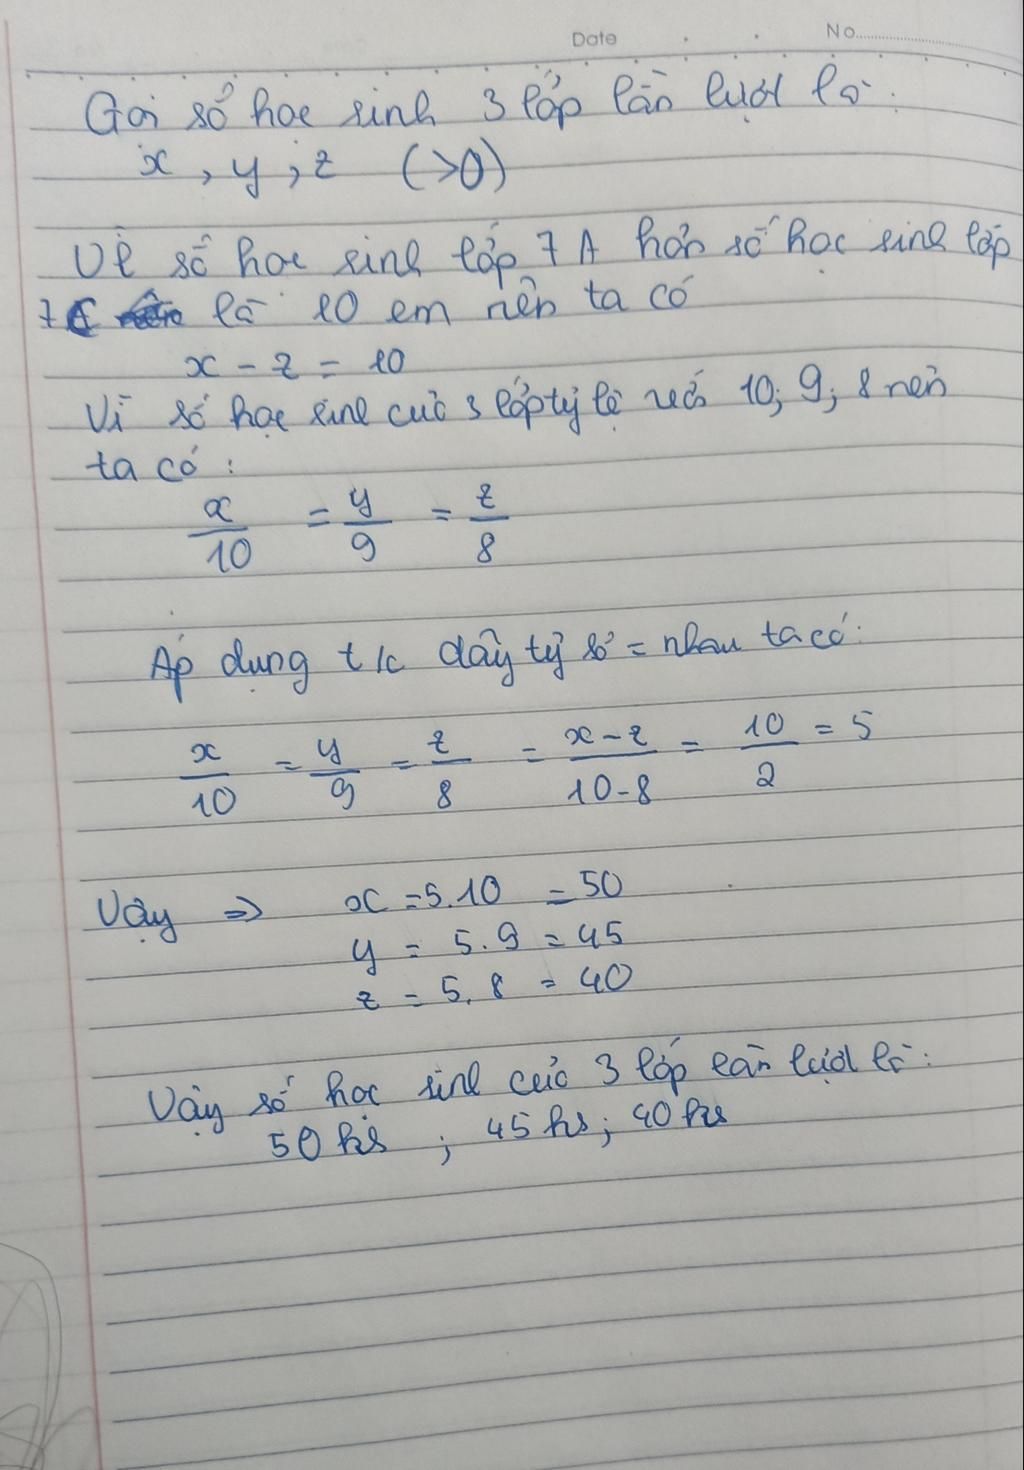 Date No
Gọi số học sinh 3 lớp lần lượt là:
x, y, z (>0)
Vì số học sinh lớp 7A hơn số học sinh lớp
7C là 10 em nên ta có
x - z = 10
Vì số học sinh của 3 lớp tỷ lệ với 10; 9; 8 nên
ta có:
x/10 = y/9 = z/8
Áp dụng t/c dãy tỷ số = nhau ta có:
x/10 = y/9 = z/8 = x-z/10-8 = 10/2 = 5
Vậy => x = 5.10 = 50
y = 5.9 = 45
z = 5.8 = 40
Vậy số học sinh của 3 lớp lần lượt là:
50 hs ; 45 hs; 40 hs